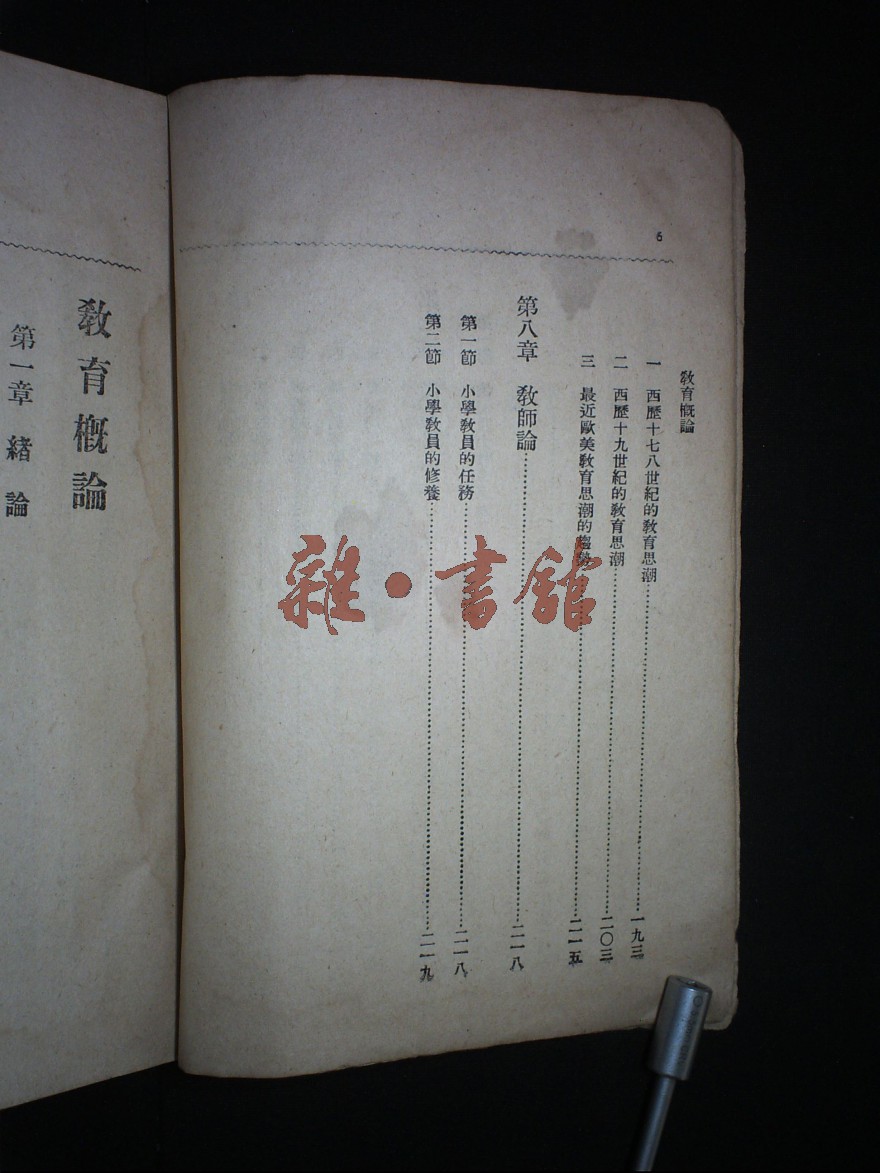 6
教育概論
一 西歷十七八世紀的教育思潮……一九三
二 西歷十九世紀的教育思潮……二〇三
三 最近歐美教育思潮的趨勢……二一五
第八章 教師論……二一八
第一節 小學教員的任務……二一八
第二節 小學教員的修養……二一九
教育概論
第一章 緒論
雜·書館